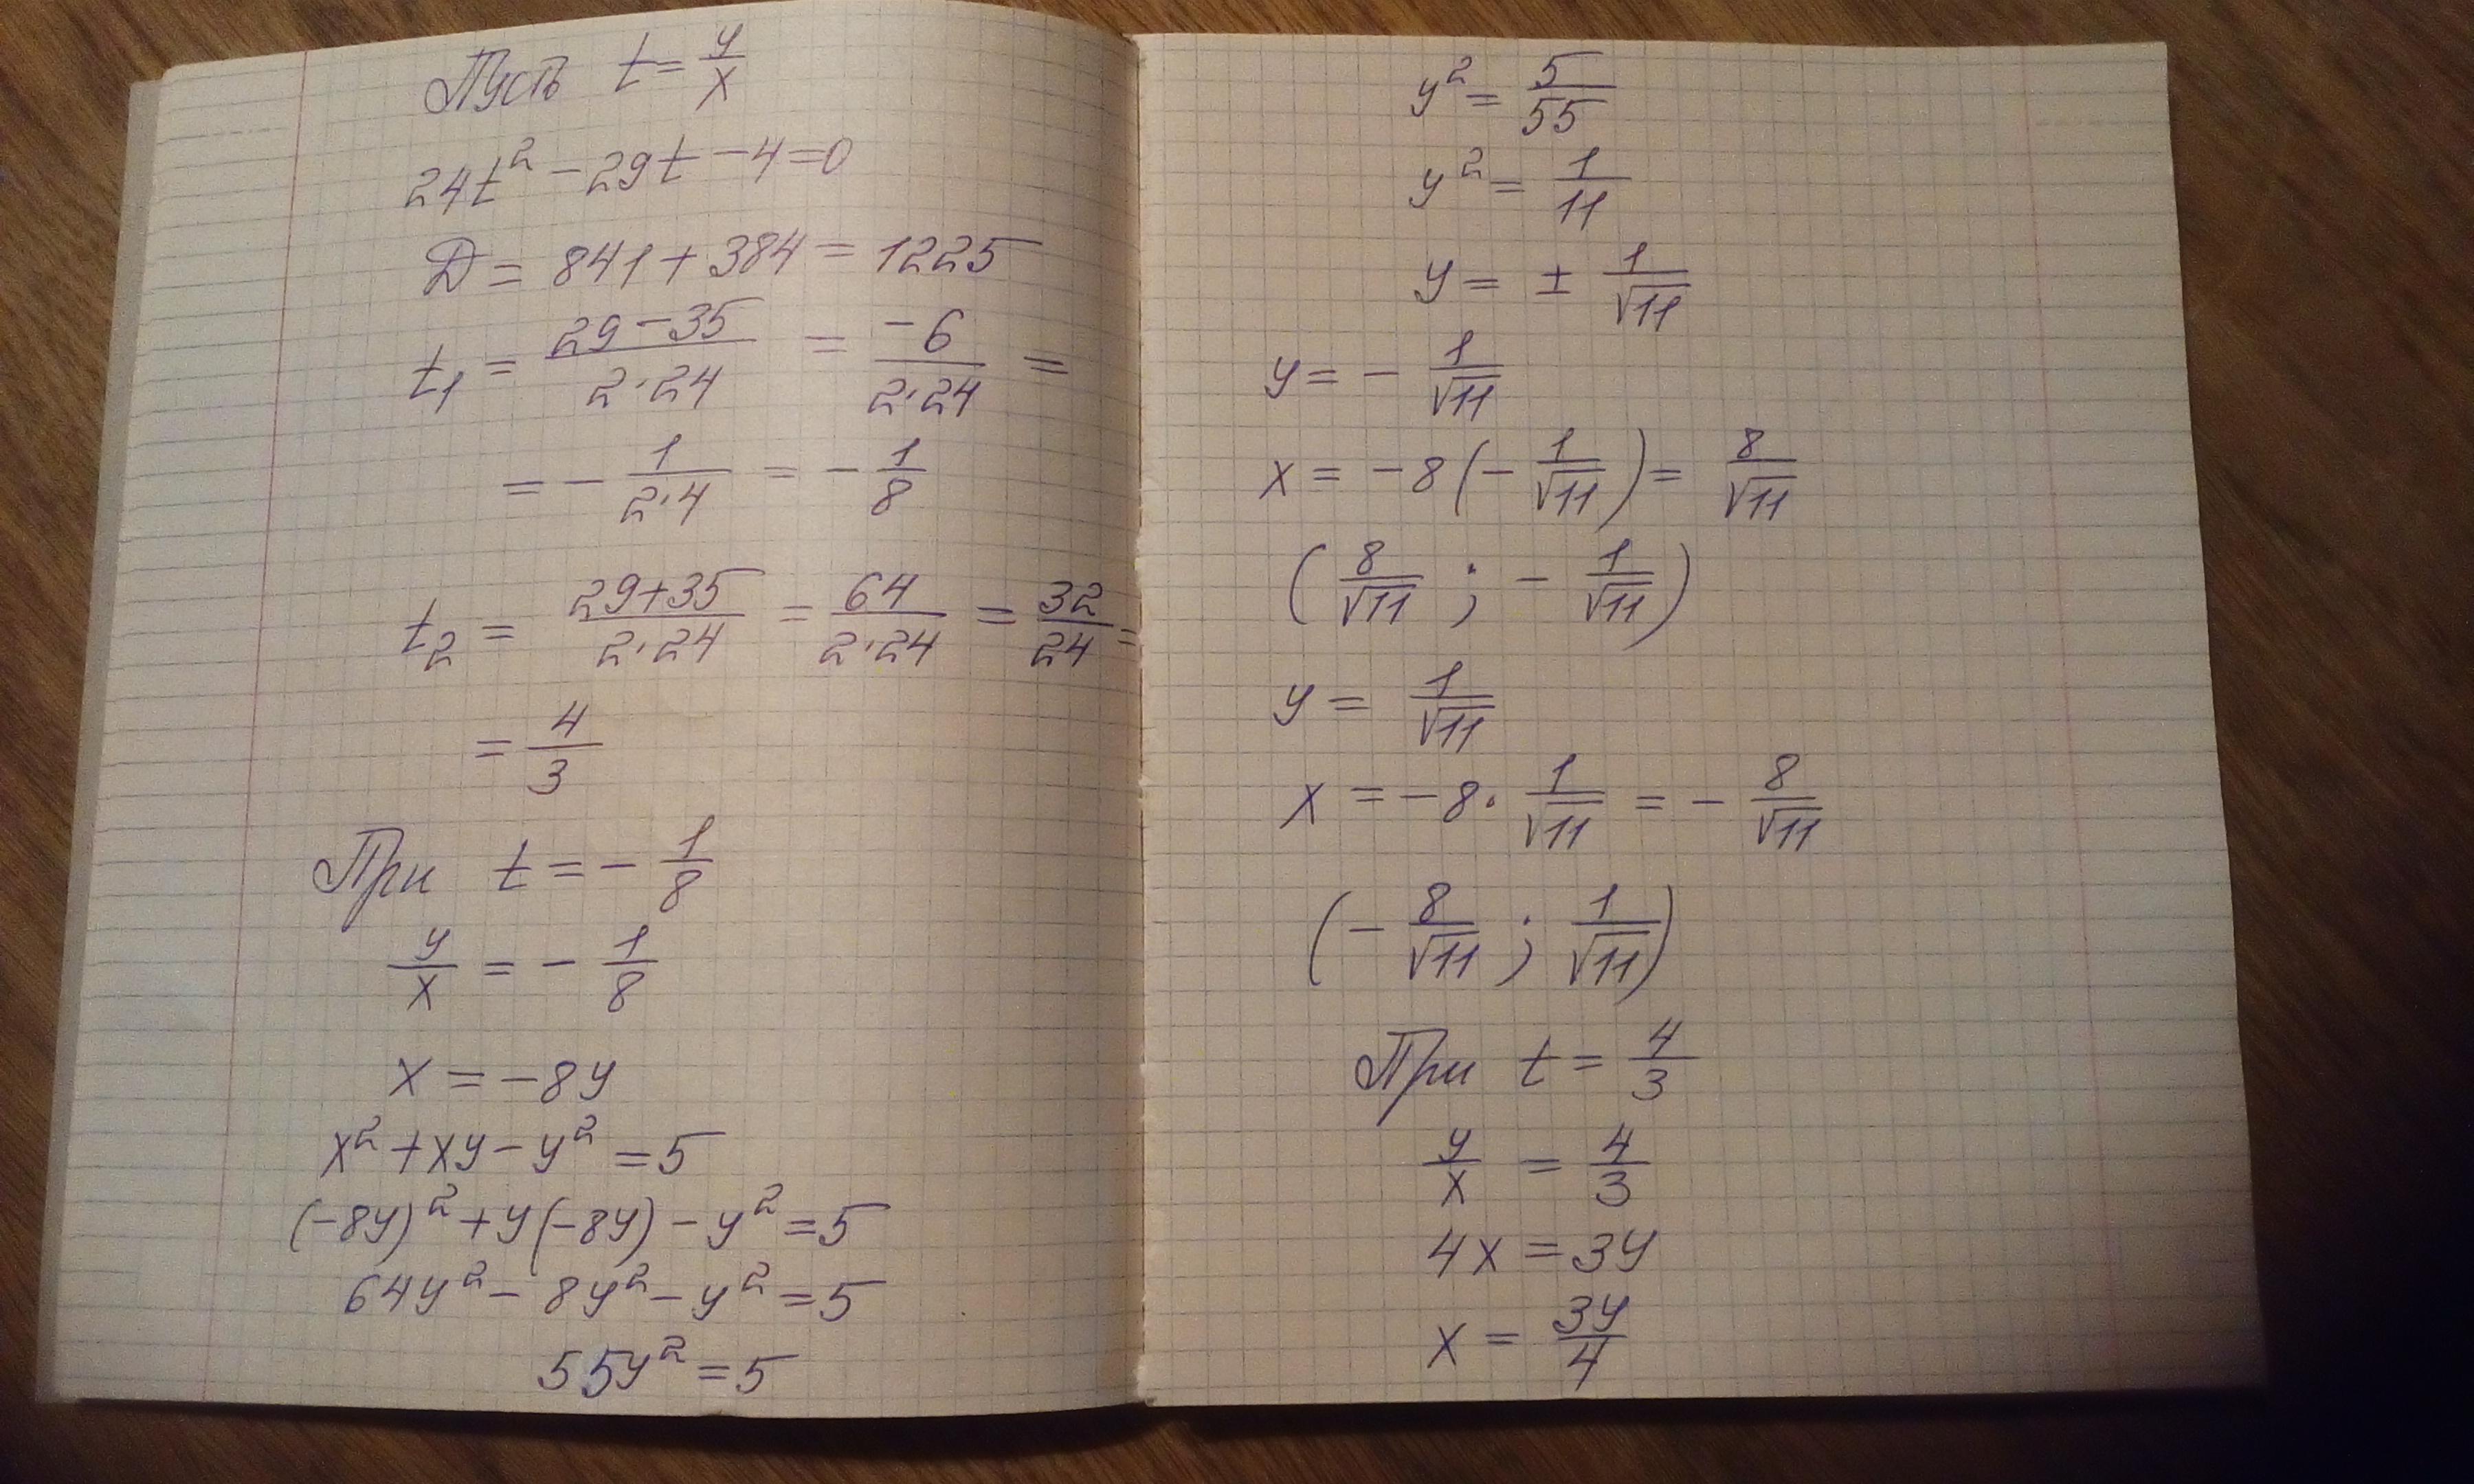 Пусть t = y/x
24t² - 29t - 4 = 0
D = 841 + 384 = 1225
t₁ = (29-35)/(2·24) = -6/(2·24) =
= - 1/(2·4) = - 1/8
t₂ = (29+35)/(2·24) = 64/(2·24) = 32/24 =
= 4/3
При t = - 1/8
y/x = - 1/8
x = -8y
x² + xy - y² = 5
(-8y)² + y(-8y) - y² = 5
64y² - 8y² - y² = 5
55y² = 5
y² = 5/55
y² = 1/11
y = ± 1/√11
y = - 1/√11
x = -8(- 1/√11) = 8/√11
(8/√11 ; - 1/√11)
y = 1/√11
x = -8 · 1/√11 = - 8/√11
(- 8/√11 ; 1/√11)
При t = 4/3
y/x = 4/3
4x = 3y
x = 3y/4